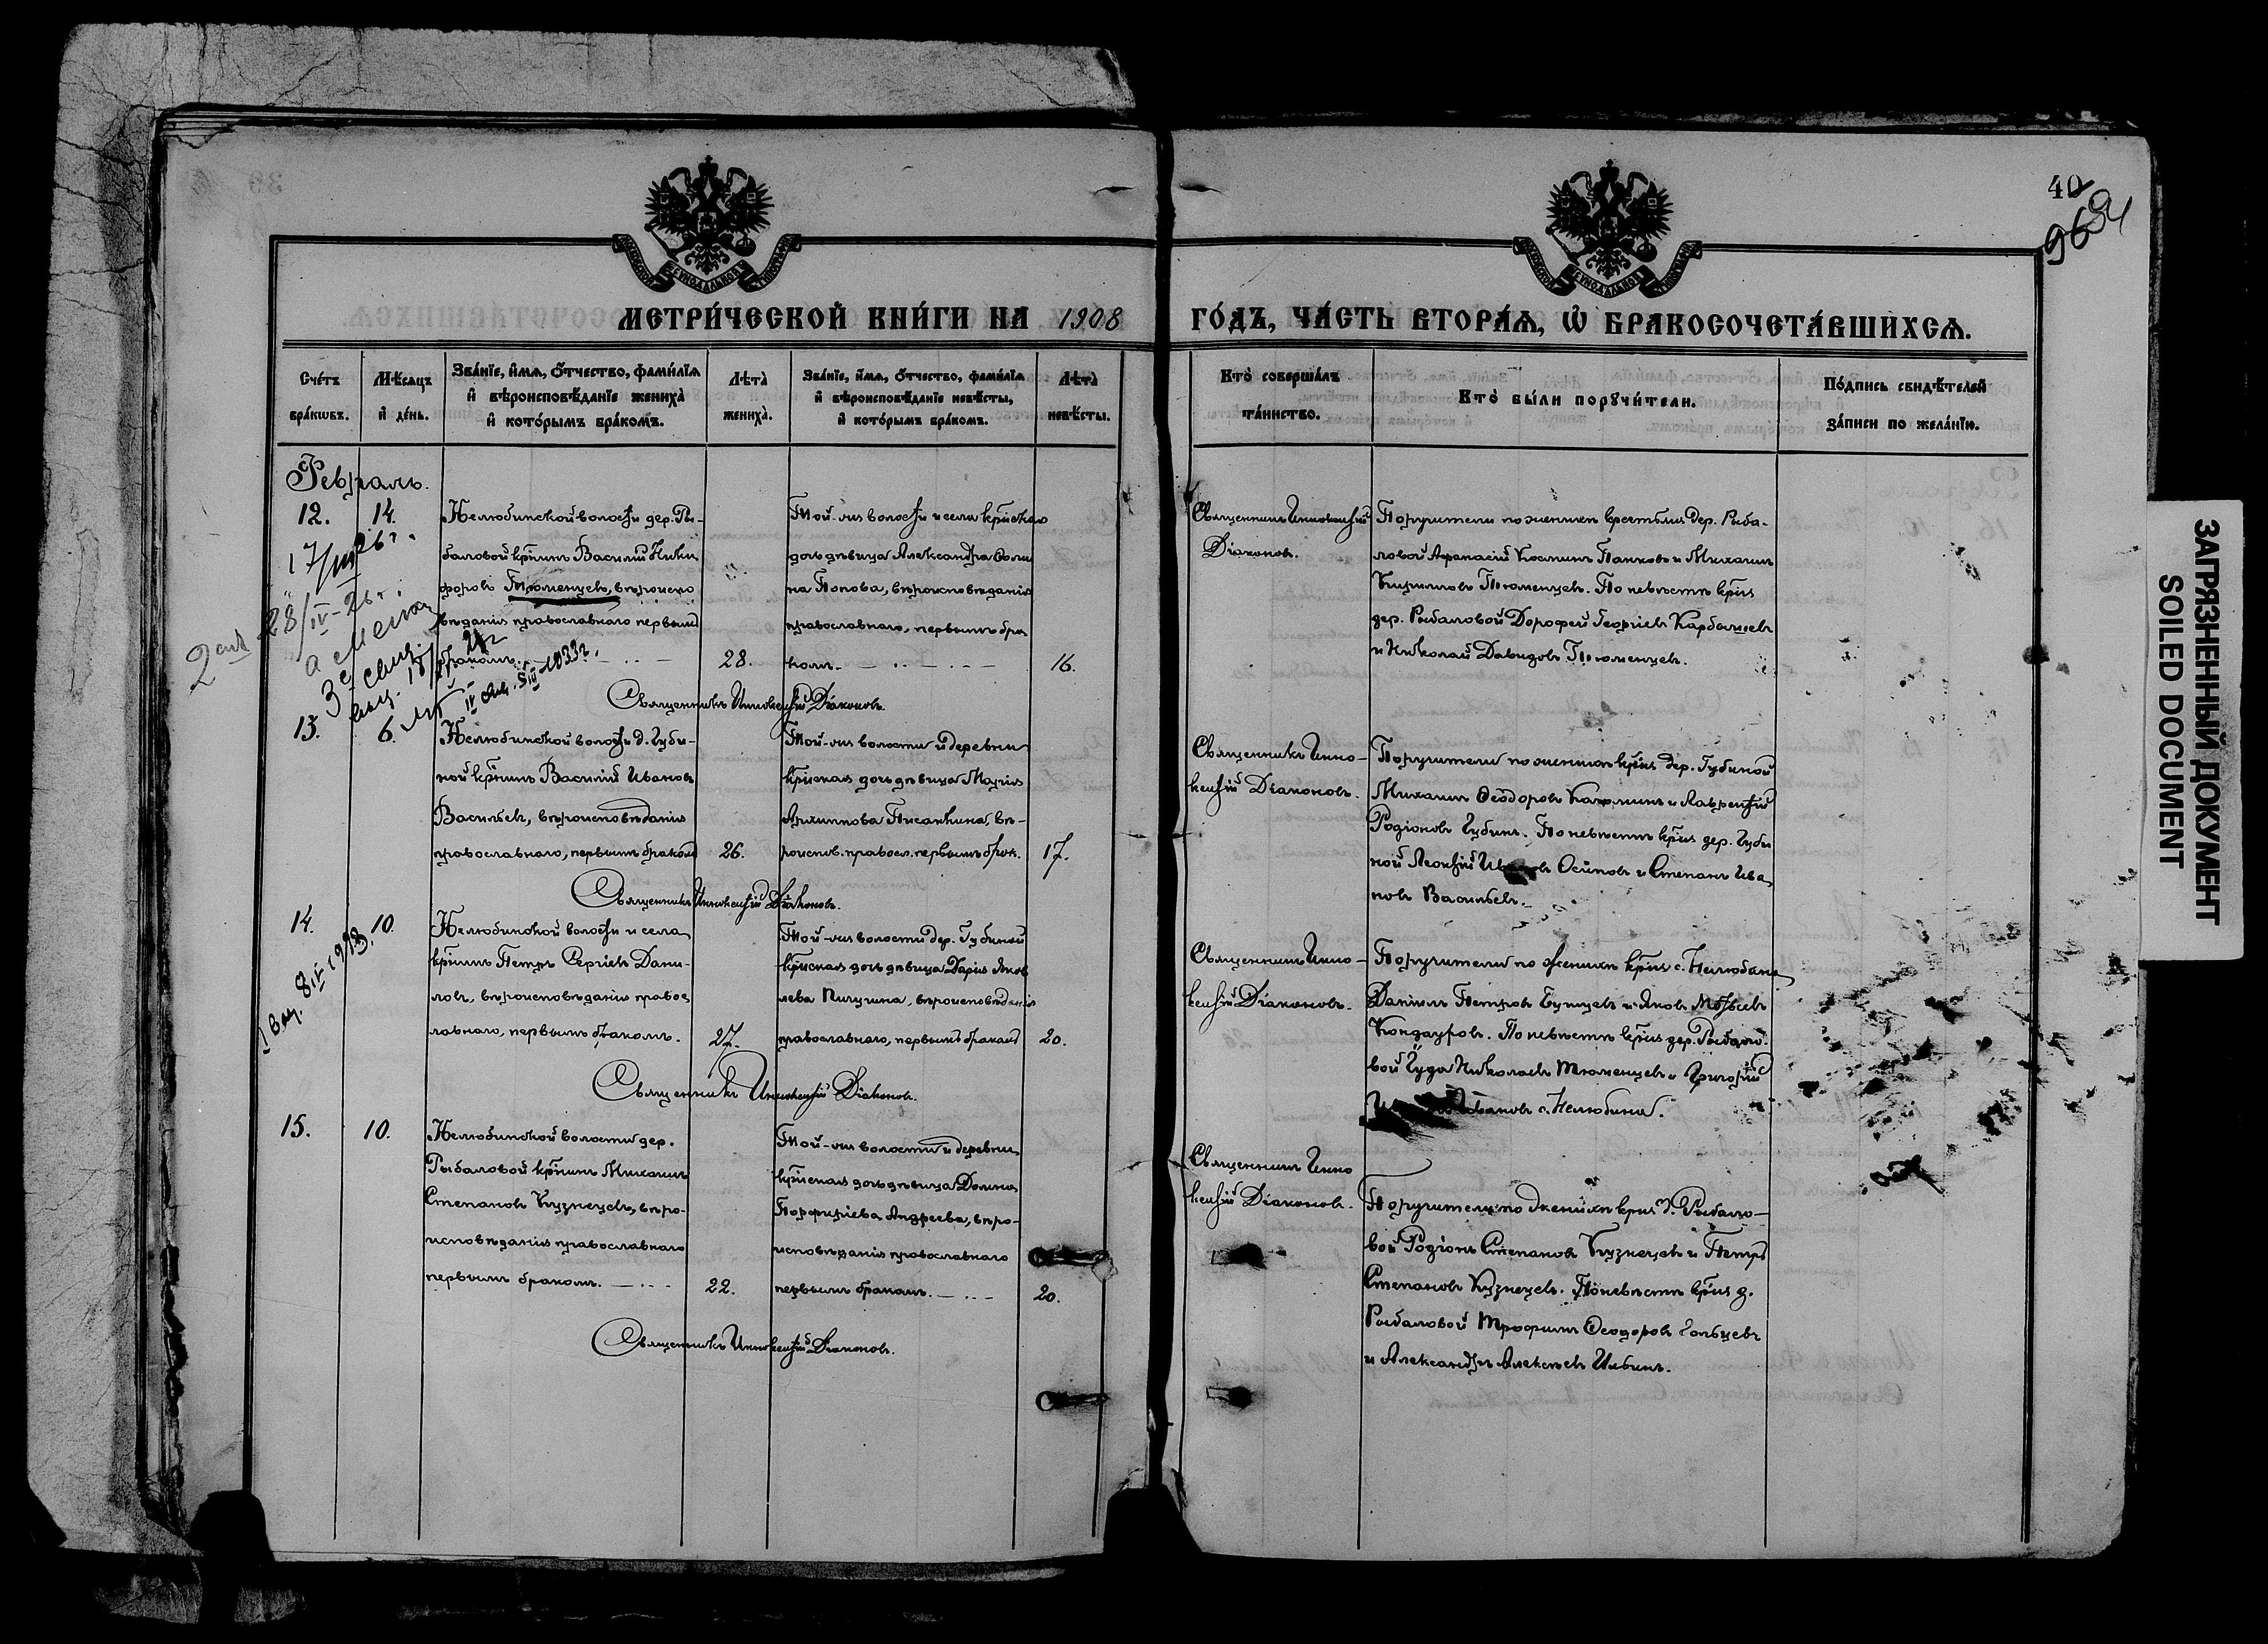 40
96
МЕТРИ́ЧЕСКОЙ КНИ́ГИ НА 1908 ГО́ДЪ, ЧА́СТЬ ВТОРА́Ѧ, Ѡ БРАКОСОЧЕТА́ВШИХСѦ.
Сче́тъ бра́кωвъ.
Мѣ́сяцъ и де́нь.
Зва́нїе, и́мѧ, ѻ́тчество, фами́лїѧ
и вѣроисповѣ́данїе жениха̀
и кото́рымъ бра́комъ.
Лѣта̀ жениха̀.
Зва́нїе, и́мѧ, ѻ́тчество, фами́лїѧ
и вѣроисповѣ́данїе невѣ́сты,
и кото́рымъ бра́комъ.
Лѣта̀ невѣ́сты.
Кто̀ соверша́лъ та́инство.
Кто̀ бы́ли порꙋчи́тели.
По́дпись свидѣ́телей
за́писи по жела́нїю.
Февраль.
12.
14.
Нелюбинской волости дер. Ры-
баловой кр̃нинъ Василий Ники
форовъ Тюменцевъ, вѣроиспо
вѣданія православнаго первымъ
бракомъ.
28.
Той-же волости и села кр̃нская
дочь дѣвица Александра
на Попова, вѣроисповѣданія
православнаго, первымъ бра
комъ.
16.
Священникъ Иннокентій
Діаконовъ.
Поручители по женихѣ крестьяне дер. Рыба-
ловой Афанасій Космина Панковъ и Михаилъ
Кирилловъ Тюменцевъ. По невѣстѣ кр̃не
дер. Рыбаловой Дорофей Георгіевъ Карбышевъ
и Николай Давидовъ Тюменцевъ.
17/III 26 г.
28/IV-26 г.
Священникъ Иннокентій Діаконовъ.
13.
6.
Нелюбинской волости д. Губи-
ной кр̃нинъ Василій Ивановъ
Васильевъ, вѣроисповѣданія
православнаго, первымъ бракомъ
26.
Той-же волости и деревни
кр̃нская дочь дѣвица Марія
Архиппова Писанкина, вѣ-
роиспов. правосл. первымъ брак.
17.
Священникъ Инно-
кентій Діаконовъ.
Поручители по женихѣ кр̃не дер. Губиной
Михаилъ Ѳеодоровъ и Лаврентій
Родіоновъ Губинъ. По невѣстѣ кр̃не дер. Губи
ной Леонтій Ивановъ Осиповъ и Степанъ Ива
новъ Васильевъ.
Священникъ Иннокентій Діаконовъ.
14.
10.
Нелюбинской волости и села
кр̃нинъ Петръ Сергіевъ Дани-
ловъ, вѣроисповѣданія правос
лавнаго, первымъ бракомъ.
27.
Той-же волости дер. Губиной
кр̃нская дочь дѣвица Дарія Яков
лева Пичугина, вѣроисповѣданія
православнаго, первымъ бракомъ
20.
Священникъ Инно-
кентій Діаконовъ.
Поручители по женихѣ кр̃не с. Нелюбина
Даніилъ Петровъ и Яковъ
Кондауровъ. По невѣстѣ кр̃не дер. Рыбало-
вой Іуда Николаевъ Тюменцевъ и Григорій
с. Нелюбина.
Священникъ Иннокентій Діаконовъ.
15.
10.
Нелюбинской волости дер.
Рыбаловой кр̃нинъ Михаилъ
Степановъ Кузнецовъ, вѣро-
исповѣданія православнаго
первымъ бракомъ.
22.
Той-же волости и деревни
кр̃нская дочь дѣвица Домна
Порфиріева Андреева, вѣро-
исповѣданія православнаго
первымъ бракомъ.
20.
Священникъ Инно
кентій Діаконовъ.
Поручители по женихѣ кр̃не д. Рыбало-
вой Родіонъ Степановъ Кузнецовъ и Петръ
Степановъ Кузнецовъ. По невѣстѣ кр̃не д.
Рыбаловой Трофимъ Ѳеодоровъ Гольцевъ
и Александръ Алексѣевъ Ильинъ.
Священникъ Иннокентій Діаконовъ.
ЗАГРЯЗНЕННЫЙ ДОКУМЕНТ
SOILED DOCUMENT